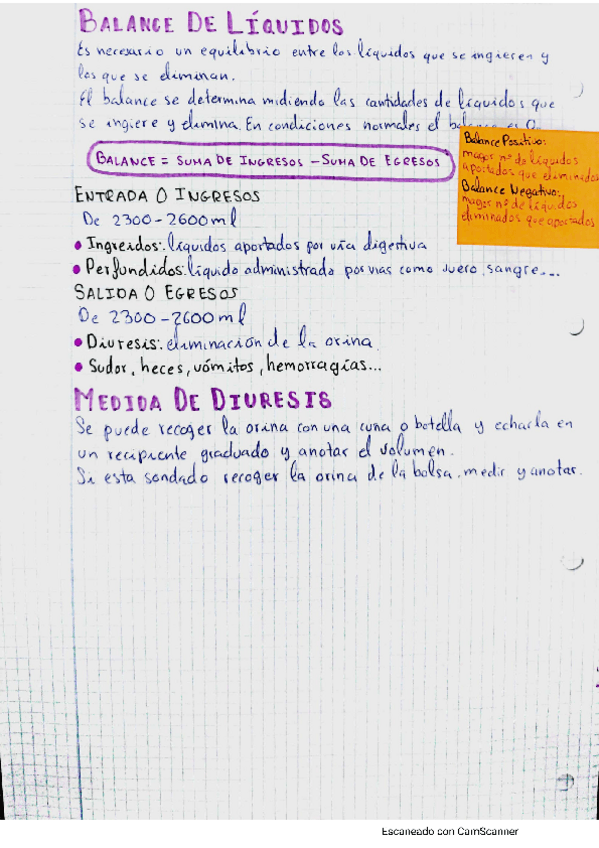 BALANCE DE LÍQUIDOS
Es necesario un equilibrio entre los líquidos que se ingieren y
los que se eliminan.
El balance se determina midiendo las cantidades de líquidos que
se ingiere y elimina. En condiciones normales el balance es 0.
BALANCE = SUMA DE INGRESOS - SUMA DE EGRESOS
Balance Positivo:
mayor nº de líquidos
aportados que eliminados
Balance Negativo:
mayor nº de líquidos
eliminados que aportados
ENTRADA O INGRESOS
De 2300-2600ml
• Ingreidos: líquidos aportados por vía digestiva
• Perfundidos: líquido administrado por vías como suero, sangre...
SALIDA O EGRESOS
De 2300-2600ml
• Diuresis: eliminación de la orina.
• Sudor, heces, vómitos, hemorragias...
MEDIDA DE DIURESIS
Se puede recoger la orina con una cuña o botella y echarla en
un recipiente graduado y anotar el volumen.
Si esta sondado recoger la orina de la bolsa, medir y anotar.
Escaneado con CamScanner